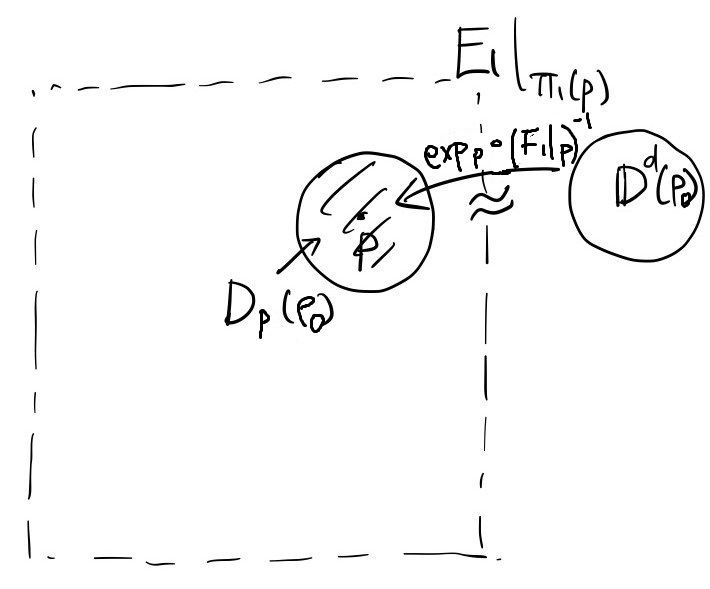 E₁|π₁(p)
expₚ∘(F₁|ₚ)⁻¹
Dᵈ(ρ₀)
p
Dₚ(ρ₀)